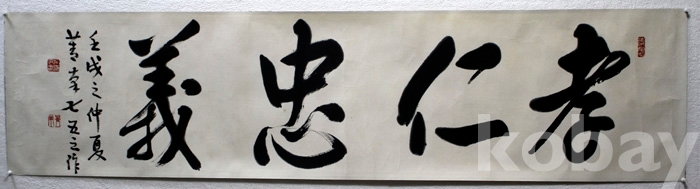 孝仁忠義
壬戌之仲夏
菁南七五之作
kobay